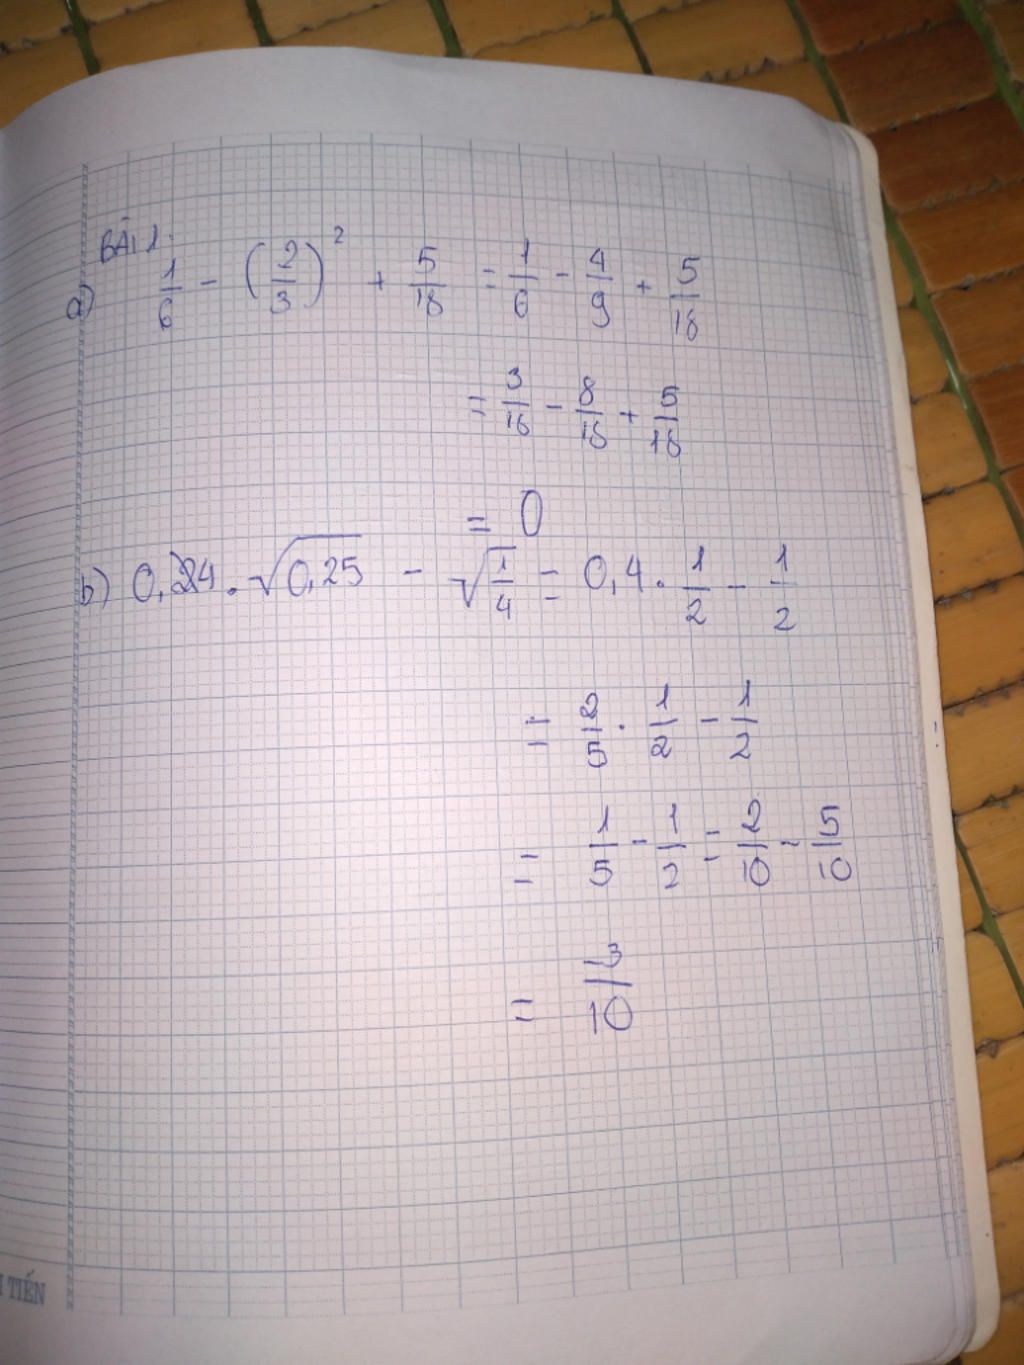 BÀI 1.
a) 1/6 - (2/3)² + 5/18 = 1/6 - 4/9 + 5/18
= 3/18 - 8/18 + 5/18
= 0
b) 0,4 . √0,25 - √1/4 = 0,4 . 1/2 - 1/2
= 2/5 . 1/2 - 1/2
= 1/5 - 1/2 = 2/10 - 5/10
= -3/10
TIẾN